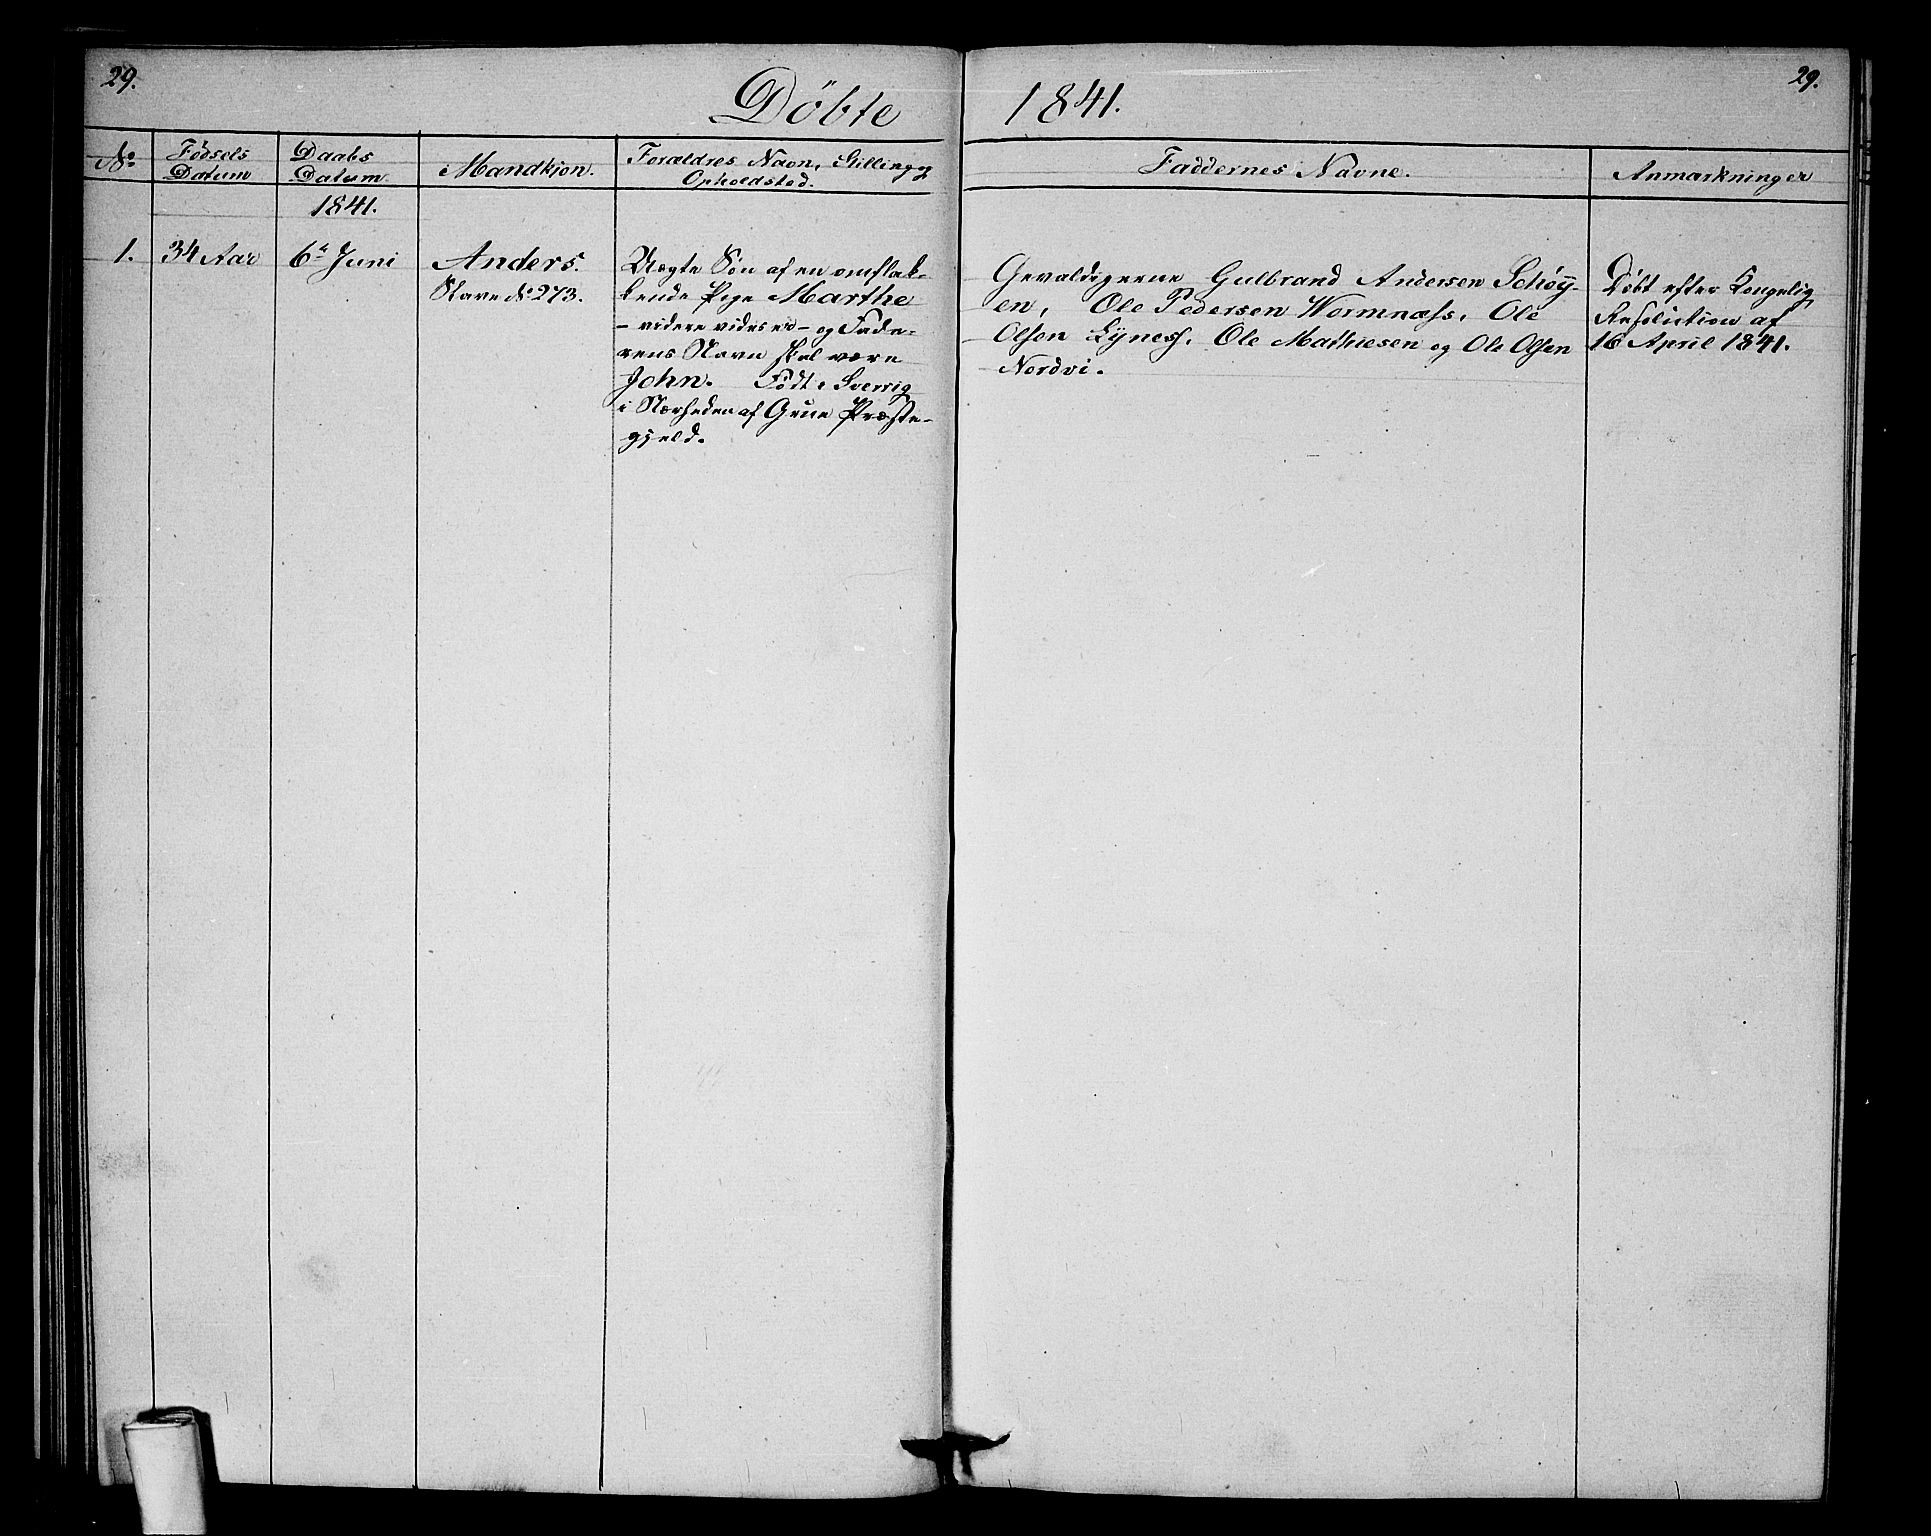 29.
Döbte 1841.
29.
No.
Fødsels Datum
Daabs Datum
Mandkjøn.
Forældres Navn, Stilling og
Opholdsted.
Faddernes Navne.
Anmærkninger
1841.
1.
34 Aar
6te Juni
Anders.
Slave No. 273.
Uægte Søn af en omflak-
kende Pige Marthe
- videre vides ei - og Fade-
rens Navn skal være
John. Født i Sverrig
i Nærheden af Grue Præste-
gjeld.
Gevaldigerne Gulbrand Andersen Schøy-
en, Ole Pedersen Wormnæss, Ole
Olsen Lyness, Ole Mathiesen og Ole Olsen
Nordvi.
Døbt efter Kongelig
Resolution af
16 April 1841.